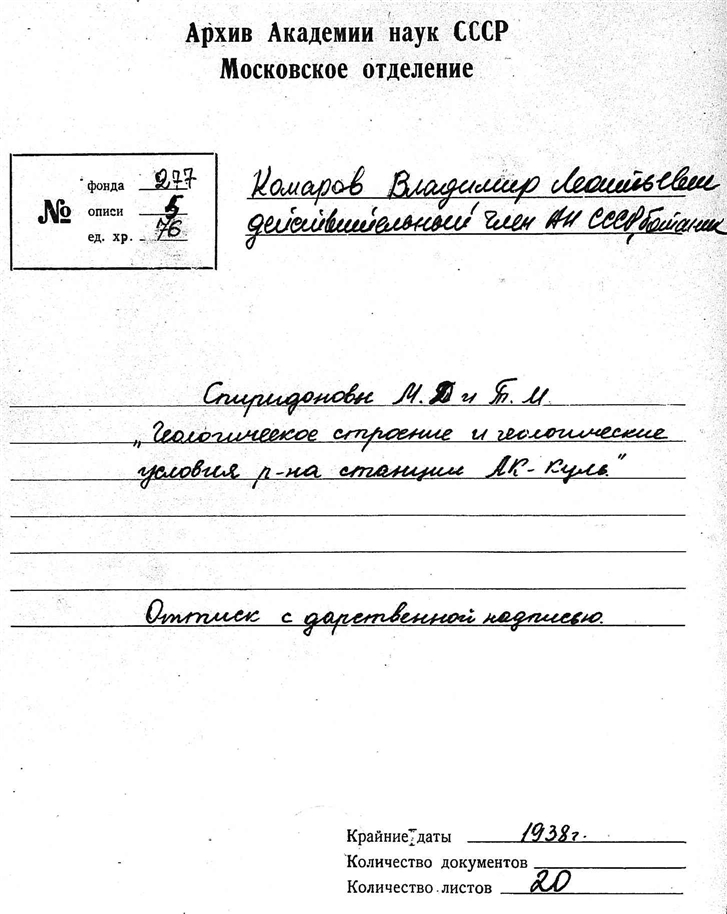 Архив Академии наук СССР
Московское отделение
№
фонда 277
описи 5
ед. хр. 76
Комаров Владимир Леонтьевич
действительный член АН СССР, ботаник
Спиридоновы М.Д и Т.М.
„Геологическое строение и геологические
условия р-на станции АК-Куль"
Оттиск с дарственной надписью.
Крайние даты 1938г.
Количество документов
Количество листов 20